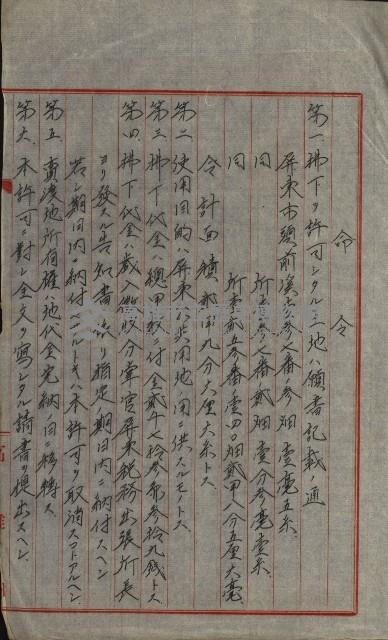 命令
第一、拂下ヲ許可シタル土地ハ願書記載ノ通
屏東市頭前溪七参七番ノ参 畑 壹毫五糸
同 所五参七番ノ貳 畑 壹分参毫壹糸
同 所壹貳五参番ノ壹四〇 畑 貳甲八分五厘六毫
合計面積貳甲九分六厘六糸トス
第二、使用目的ハ屏東公共用地ノ用ニ供スルモノトス
第三、拂下代金ハ總甲數ニ付金貳千七拾参円参拾九銭トス
第四、拂下代金ハ歳入徴收分掌官屏東税務出張所長
ヨリ發スル告知書ニ依リ指定ノ期日内ニ納付スヘシ
若シ期日内ニ納付セサルトキハ本許可ヲ取消スコトアルヘシ
第五、賣渡地所有權ハ地代金完納ノ日ニ移轉ス
第六、本許可ニ對シ全文ヲ寫シタル請書ヲ提出スヘシ